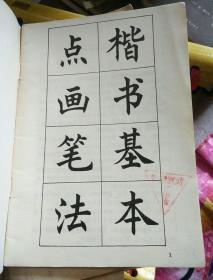 楷书基本
点画笔法
1